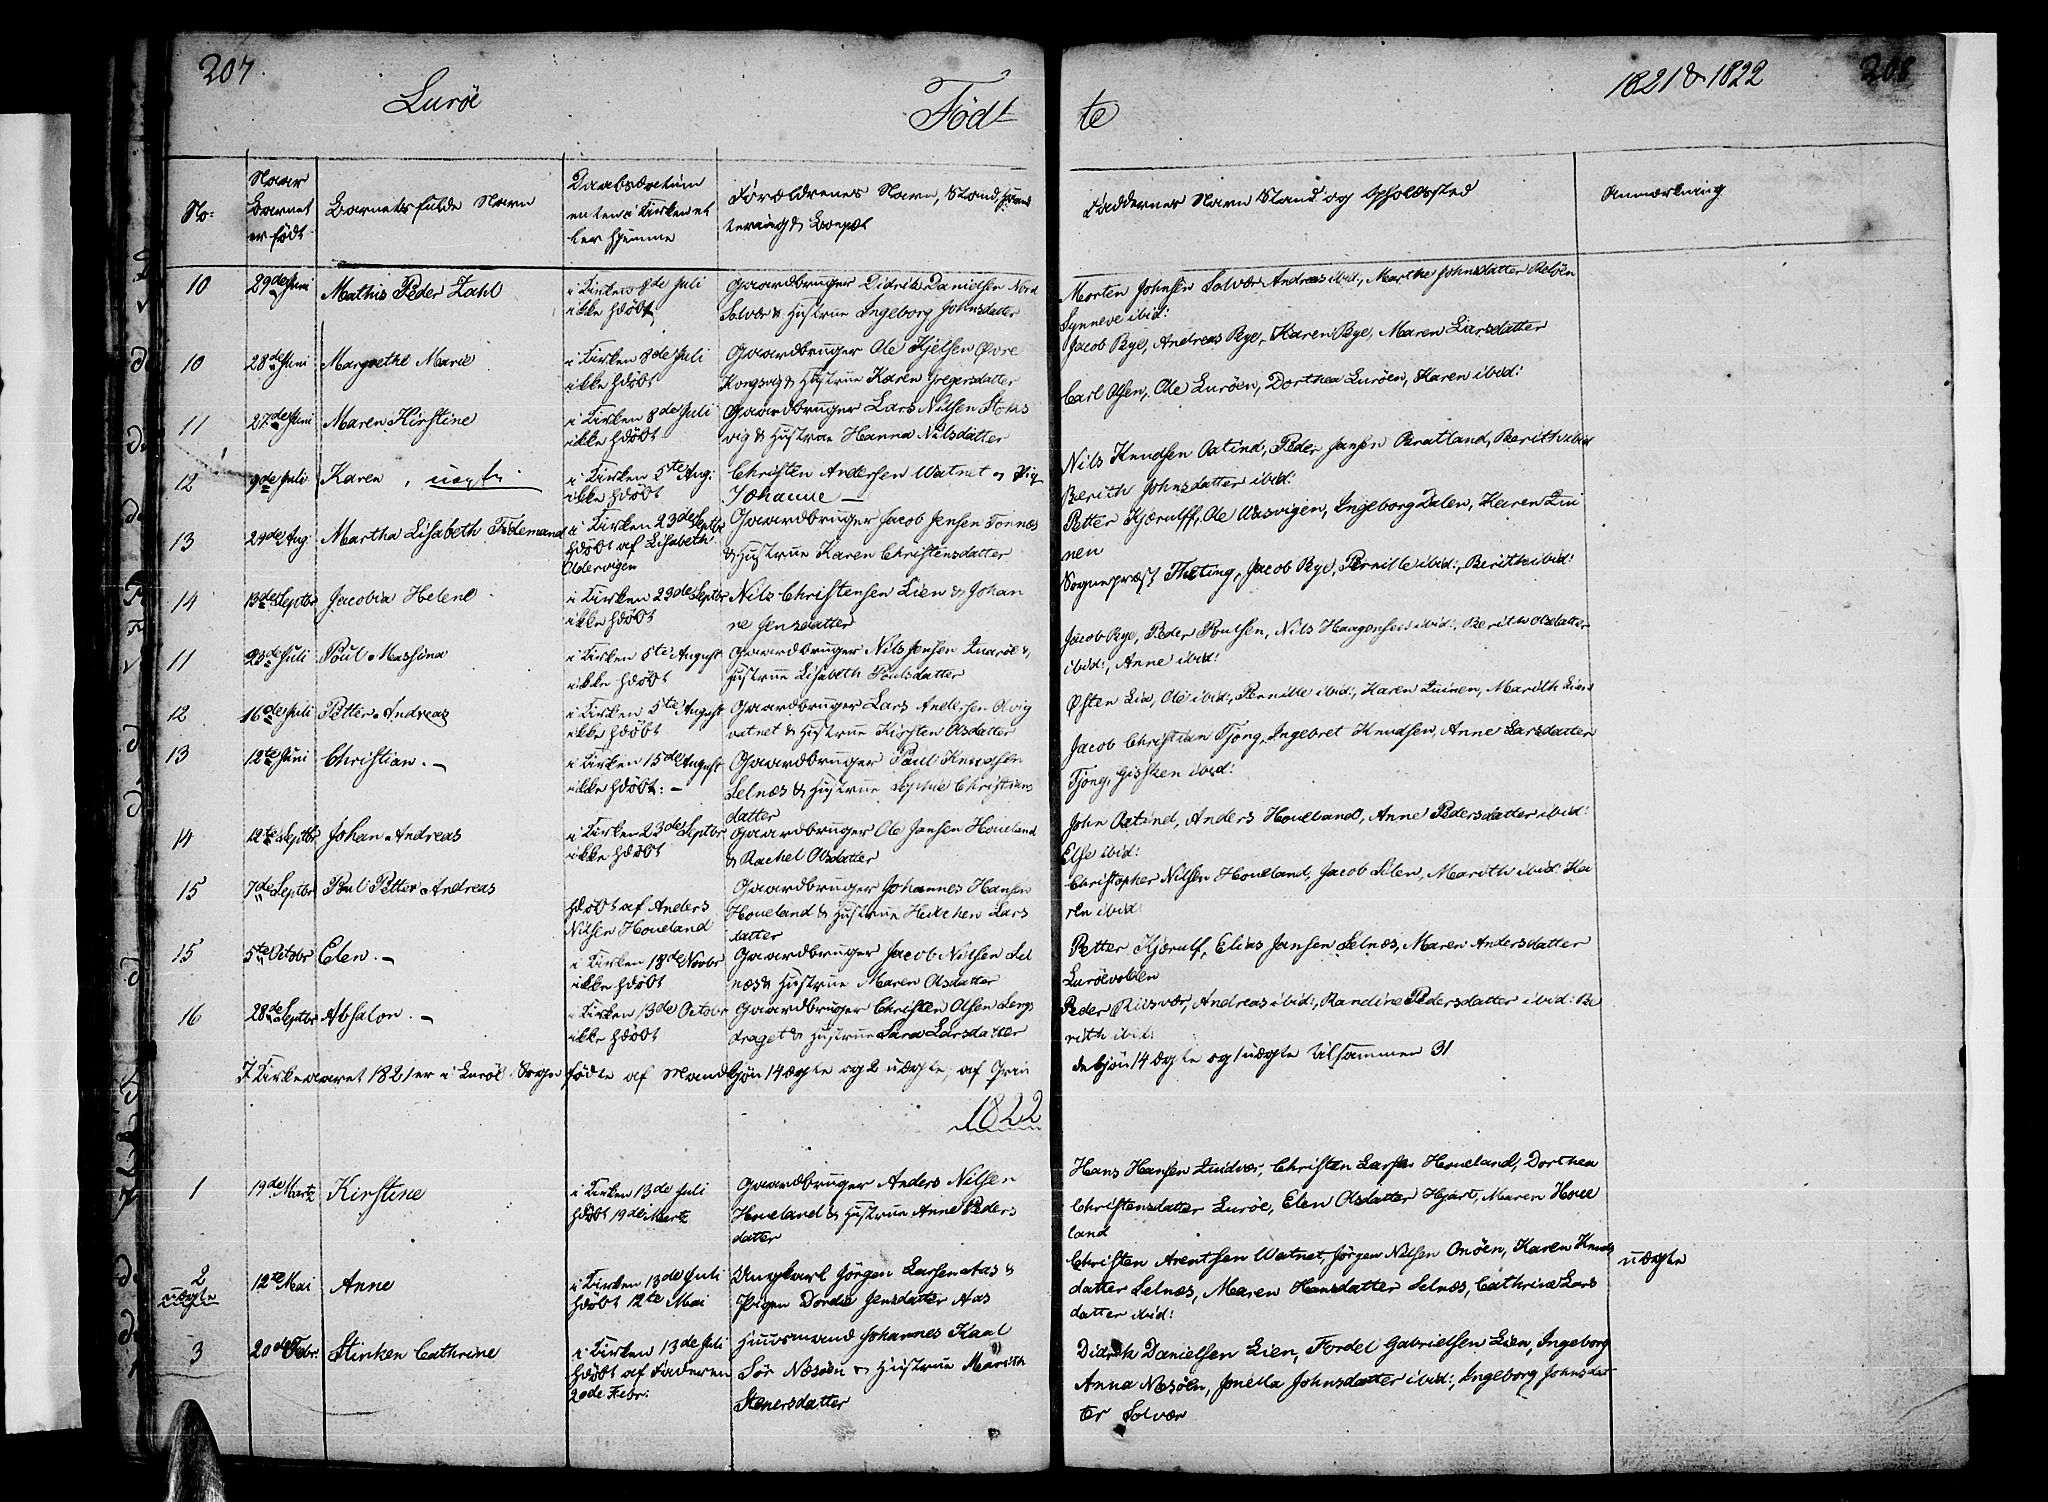 207.
Lurøe
Født
te
1821 & 1822
208
No:
Naar
Barnet
er født
Barnets fulde Navn
Daabsdatum
enten i Kirken el
ler hjemme
Forældrenes Navn, Stand, Haand
tering & Bopæl
Faddernes Navn Stand og Opholdssted
Anmærkning
10
29de Juni
Mathis Peder Zahl
i Kirken 8de Juli
ikke hdøbt
Gaardbruger Didrik Danielsen Nord
Solvær & Hustrue Ingeborg Johnsdatter
Morten Johnsen Solvær Andreas ibid:, Marthe Johnsdatter
Synneve ibid:
10
28de Juni
Margrethe Marie
i Kirken 8de Juli
ikke hdøbt
Gaardbruger Ole Kjelsen Øvre
Kongsvig & Hustrue Karen Gregersdatter
Jacob Bye, Andreas Bye, Karen Bye, Maren Larsdatter
11
27de Juni
Maren Kirstine
i Kirken 8de Juli
ikke hdøbt
Gaardbruger Lars Nilsen Stoks
vig & Hustrue Hanna Nilsdatter
Carl Olsen, Ole Lurøen, Dorthea Lurøen, Karen ibid:
12
9de Juli
Karen, uægte
i Kirken 5te Aug:
ikke hdøbt
Christen Andersen Watnet og Pig
Johanne —
Nils Knudsen Oxtind, Peder Jansen Bratland, Berith ibid
Berith Johnsdatter ibid:
13
24de Aug.
Martha Lisabeth Tidemand
i Kirken 23de Septbr
hdøbt af Lisabeth
Oldervigen
Gaardbruger Jacob Jensen Tonnes
& Hustrue Karen Christensdatter
Petter Kjærulff, Ole Wasvigen, Ingeborg Dalen, Karen Qui
nen
14
13de Septbr
Jacobia Helene
i Kirken 23de Septbr
ikke hdøbt
Nils Christensen Lien & Johan
ne Jensdatter
Sognepræst Theting, Jacob Bye, Pernille ibid:, Berith ibid:
11
23de Juli
Poul Massina
i Kirken 5te August
ikke hdøbt
Gaardbruger Nils Jensen Quarøe &
Hustrue Lisabeth Poulsdatter
Jacob Bye, Peder Poulsen, Nils Haagensen ibid:, Berith Olsdatter
ibid:, Anne ibid:
12
16de Juli
Petter Andreas
i Kirken 5te August
ikke hdøbt
Gaardbruger Lars Andersen Olvig
vatnet & Hustrue Kirsten Olsdatter
Østen Lie, Ole ibid:, Pernille ibid:, Karen Quinen, Marith Lien
13
12te Juni
Christian. —
i Kirken 15de August
ikke hdøbt: —
Gaardbruger Paul Knudsen
Selnæs & Hustrue Sophie Christians
datter
Jacob Christian Tjong, Ingebret Knudsen, Anne Larsdatter
Tjong, Gisken ibid:
14
12te Septbr
Johan Andreas
i Kirken 23de Septbr
ikke hdøbt
Gaardbruger Ole Jansen Houeland
& Rachel Olsdatter
John Oxtind, Anders Houeland, Anne Pedersdatter ibid:
Else ibid:
15
7de Septbr
Poul Petter Andreas
hdøbt af Anders
Nilsen Houeland
Gaardbruger Johannes Hansen
Houeland & Hustrue Lars
datter
Christopher Nilsen Houeland, Jacob Silen, Marith ibid: Ka
ren ibid:
15
5te Octobr
Elen. —
i Kirken 18de Novbr
ikke hdøbt
Gaardbruger Jacob Nilsen Sel
næs & Hustrue Maren Olsdatter
Petter Kjærulf, Elias Jansen Selnæs, Maren Andersdatter
Lurøevolden
16
28de Septbr
Absalon. —
i Kirken 13de Octobr
ikke hdøbt
Gaardbruger Christen Olsen Lengs
draget & Hustrue Sara Larsdatter
Peder Riisvær, Andreas ibid:, Randine Pedersdatter ibid: Be
rith ibid:
I Kirkeaaret 1821 er i Lurøe Sogn fødte af Mandkjøn 14 ægte og 2 uægte, af Qvin
dekjøn 14 ægte og 1 uægte tilsammen 31
1822
1
19de Martz
Kirstine
i Kirken 13de Juli
hdøbt 19de Martz
Gaardbruger Anders Nilsen
Houeland & Hustrue Anne Peders
datter
Hans Hansen Quidvær, Christen Larsen Houeland, Dorthea
Christensdatter Lurøe, Elen Olsdatter Hjart, Maren Houe
land
2
uægte
12te Mai
Anne
i Kirken 13de Juli
hdøbt 12te Mai
Ungkarl Jørgen Larsen Aas &
Pigen Dordie Jensdatter Aas
Christen Arentsen Watnet, Jørgen Nilsen Onøen, Karen Knuds
datter Selnæs, Maren Hansdatter Selnæs, Cathrine Lars
datter ibid:
uægte
3
20de Febr.
Stinken Cathrine
i Kirken 13de Juli
hdøbt af Faderen
20de Febr:
Huusmand Johannes Kaal
Sør Næsøen & Hustrue Marith
Stenersdatter
Didrik Danielsen Lien, Fordel Gabrielsen Lien, Ingeborg
Anna Næsøen, Jonetta Johnsdatter ibid:, Ingeborg Johnsdat
ter Solvær